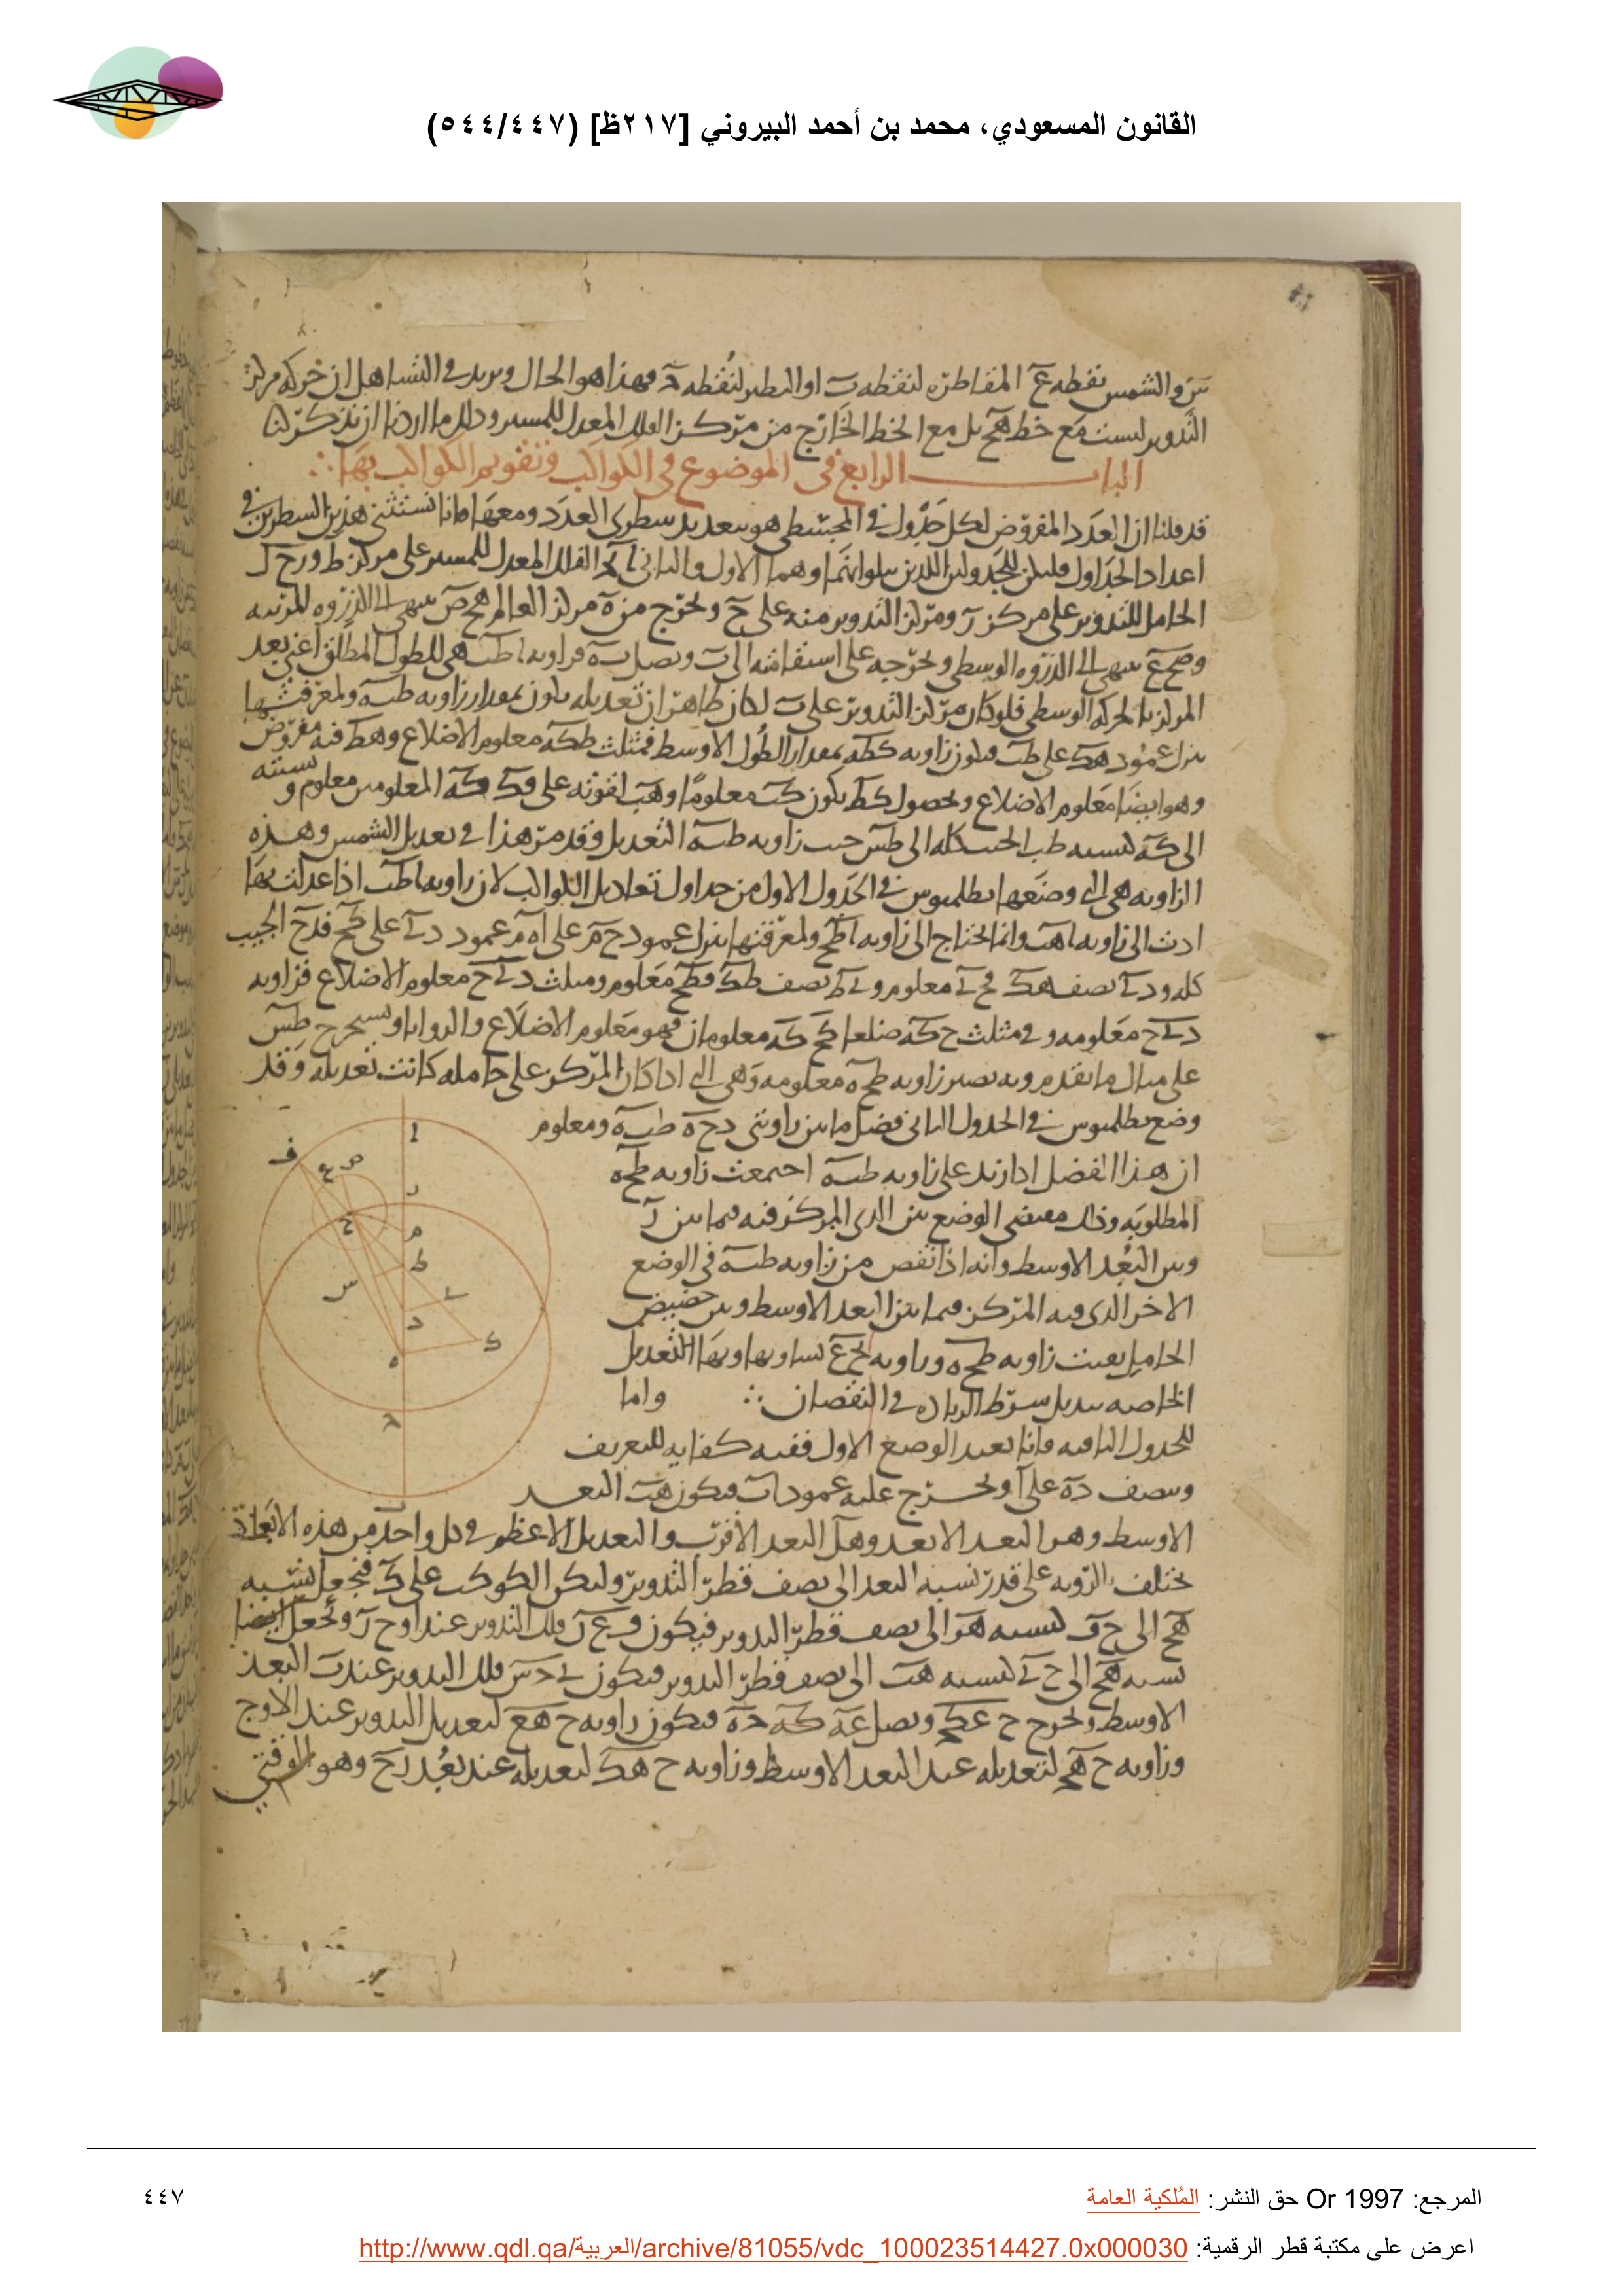 القانون المسعودي، محمد بن أحمد البيروني [٢١٧ظ] (٥٤٤/٤٤٧)
والشمس نقطه المقاطره لنقطه او النظير لنقطه فهذا هو الحال ونريد في الشاهل ان حركه مركز
التدوير ليست مع خط هح بل مع الخط الخارج من مركز الفلك المعدل للمسير وذلك ما اردنا ان نذكر لنا
الباب الرابع في الموضوع في الكواكب وتقويم الكواكب بها
قد قلنا ان العدد المفروض لكل جدول في المجسطي هو سطري العدد ومعها فانا نستثني هذين السطرين في
اعداد الجداول وليكن للجدولين اللذين يتلوانهما وهما الاول والثاني الفلك المعدل للمسير على مركز ط و رح ل
الحامل للتدوير على مركز د ومركز التدوير منه على ح ونخرج من ه مركز العالم هح ص ينتهي الى الذروه المرئيه
وطح ع ينتهي الى الذروه الوسطى ونخرجه على استقامته الى ونصل فزاويه اطب هي للطول المطلق اعني بعد
المركز بالحركه الوسطى فلو كان مركز التدوير على ب لكان ظاهرا ان تعديله يكون بمقدار زاويه طبه ولمعرفتها
ننزل عمود هك على طب فتكون زاويه كطه بمقدار الطول الاوسط فمثلث طكه معلوم الاضلاع وهط فيه مفروض
وهو ايضا معلوم الاضلاع وبحصول كط يكون كب معلوما وهب لقوته على كه المعلومين معلوم ونسبته
الى كه كنسبه طب الجيب كله الى طس جيب زاويه طبه التعديل وقد مر هذا في تعديل الشمس وهذه
الزاويه هي التي وضعها بطلميوس في الجدول الاول من جداول تعاديل الكواكب لان زاويه اطب اذا عدلت بها
ادت الى زاويه اهب وانما نحتاج الى زاويه اطح ولمعرفتها ننزل عمود حم على اه وعمود دي على كح فدح الجيب
كله ودي نصف هك فحي معلوم وي ط نصف طك فطح معلوم ومثلث ديح معلوم الاضلاع فزاويه
ديح معلومه وفي مثلث حكه ضلعا كح كه معلومان فهو معلوم الاضلاع والزوايا ونستخرج طس
على مثال ما تقدم وبه تصير زاويه طحه معلومه وهي التي اذا كان المركز على حامله كانت تعديله وقد
وضع بطلميوس في الجدول الثاني فضل ما بين زاويتي دحه طبه ومعلوم
ان هذا الفضل اذا زيد على زاويه طبه اجتمعت زاويه طحه
المطلوبه وذلك مقتضى الوضع الذي المركز فيه فيما بين
وبين البعد الاوسط وانه اذا نقص من زاويه طبه في الوضع
الاخر الذي فيه المركز فيما بين البعد الاوسط وبين حضيض
الحامل بقيت زاويه طحه وزاويه تساويها وبها التعديل
الخاصه بتبديل شرط الزياده في النقصان واما
للجدول الباقيه فانا نعيد الوضع الاول ففيه كفايه للتعريف
وننصف ده على ا ونخرج عليه عمود اب فيكون هب البعد
الاوسط وهر البعد الابعد وهل البعد الاقرب والتعديل الاعظم في كل واحد من هذه الابعاد
يختلف بالرويه على قدر نسبه البعد الى نصف قطر التدوير وليكن الكوكب على ك فنجعل نسبه
هح الى ح ف كنسبه هر الى نصف قطر التدوير فيكون فلك التدوير عند اوج ونجعل ايضا
نسبه هح الى حي كنسبه هب الى نصف قطر التدوير فيكون فلك التدوير عند ب البعد
الاوسط ونخرج ح ونصل فيكون زاويه ح هع لتعديل التدوير عند الاوج
وزاويه لتعديله عند البعد الاوسط وزاويه ح هك لتعديله عند بعد رح وهو الوقتي
٤٤٧
المرجع: Or 1997 حق النشر: المُلكية العامة
اعرض على مكتبة قطر الرقمية: http://www.qdl.qa/العربية/archive/81055/vdc_100023514427.0x000030